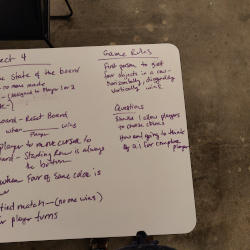 ect 4
Game Rules
e State of the board
First person to get
no move made
four objects in a row -
(assigned to Player 1 or 2
horizontally, diagonally
vertically wins
board - Reset Board
when wins
Player
Questions
Should I allow players
to choose colors
player to move cursor to
How am I going to think
board - Starting Row is always
of a.i for computer
the bottom
player
when Four of same color is
tied match - (no one wins)
player turns